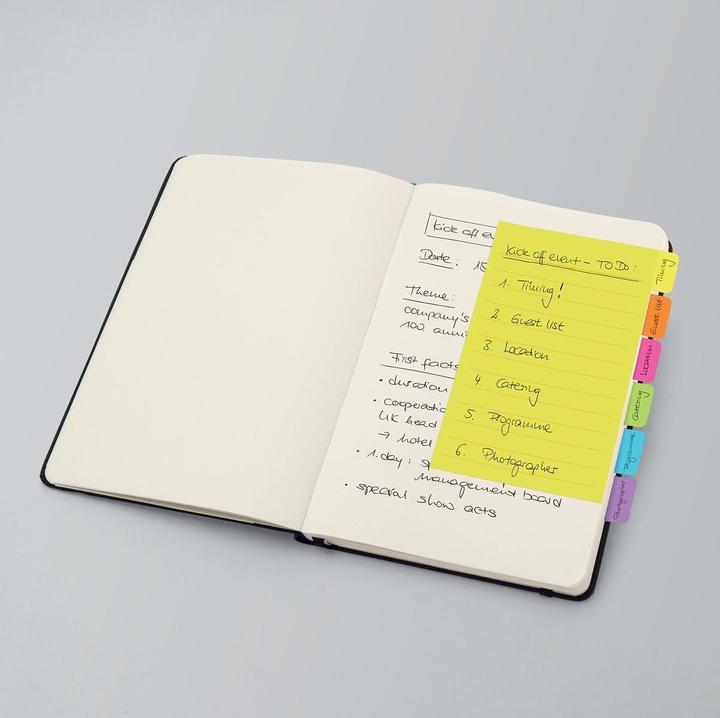 Kick off
Date: 15
Theme:
company's
100
First facts
• duration
•
UK head
→ hotel
• 1.day:
management board
• special show acts
Kick off event - TO Do:
1. Timing!
2. Guest list
3. Location
4 Catering
5. Programme
6. Photographer
Timing
Guest list
Location
Catering
Programme
Photographer